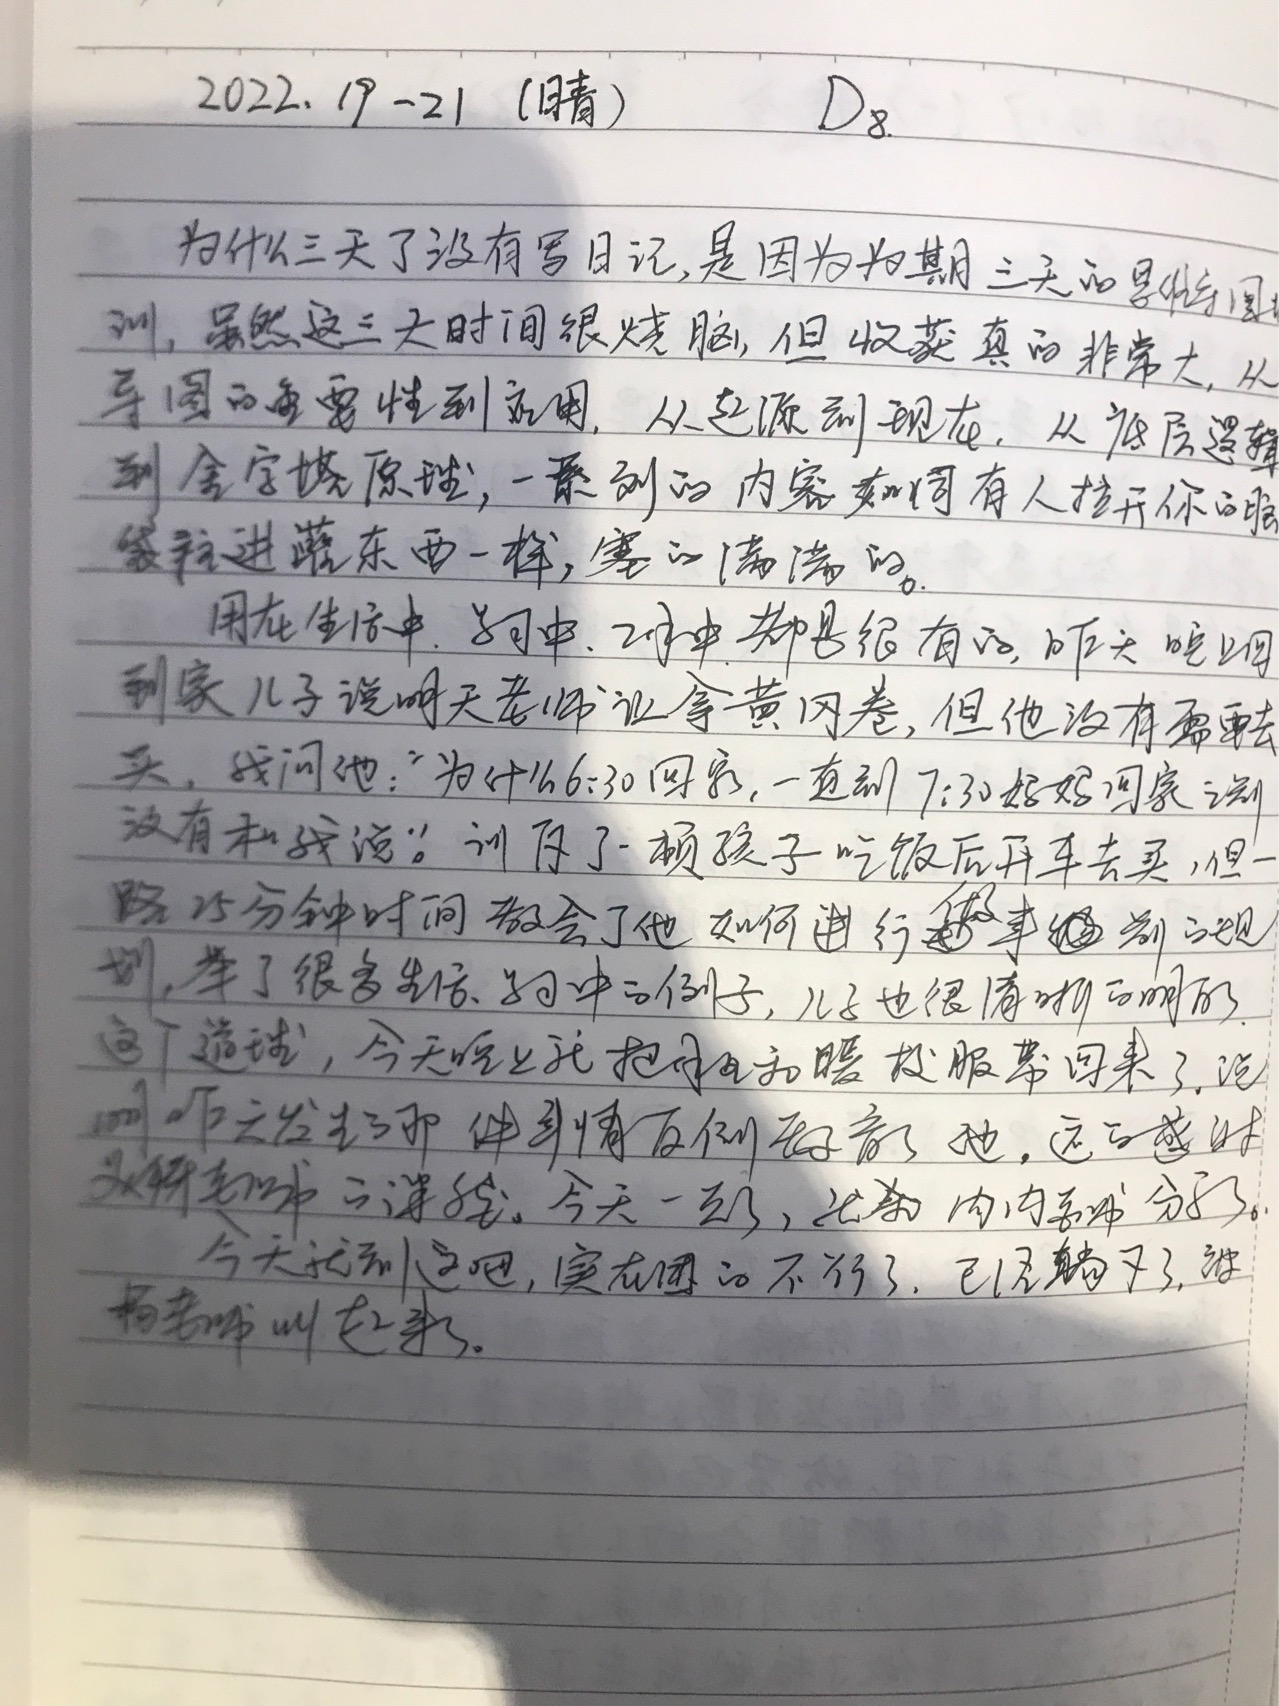 2022. 19-21 (晴) D8.
为什么三天了没有写日记,是因为为期三天的思维导图
训,虽然这三天时间很烧脑,但收获真的非常大,从
导图的重要性到应用,从起源到现在,从底层逻辑
到金字塔原理,一系列的内容如同有人拉开你的脑
袋往进蘸东西一样,塞的满满的。
用在生活中、学习中、工作中都是很有的,昨天晚上回
到家儿子说明天老师让拿黄冈卷,但他没有需要去
买,我问他:“为什么6:30回家,一直到7:30妈妈回家之前
没有和我说”!训斥了一顿孩子吃饭后开车去买,但一
路25分钟时间教会了他如何进行做事前的规
划,举了很多生活、学习中的例子,儿子也很清晰的明白
这个道理,今天晚上就把和暖校服带回来了,说
明昨天发生了那件事情反倒教育了他,这的感谢
老师的课程。今天一点了,比和内内老师分了。
今天就到这吧,实在困的不行了,已经躺下了,被
杨老师叫起来了。